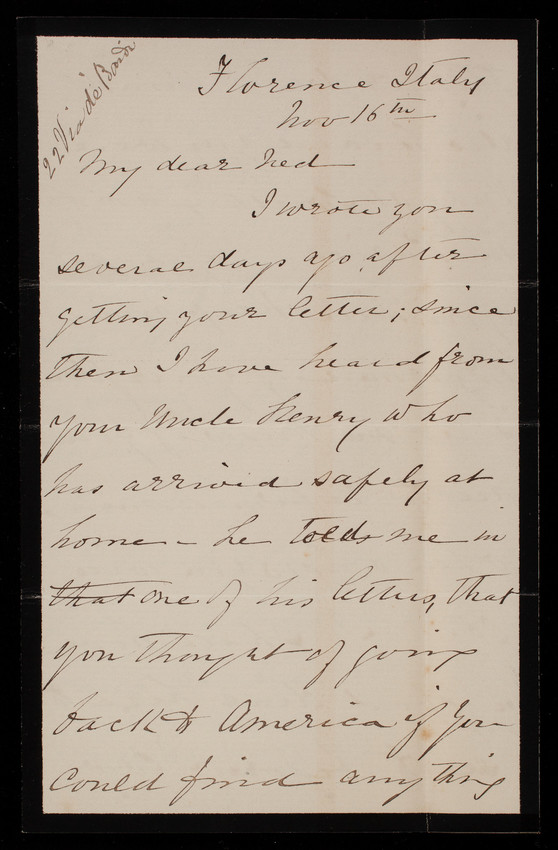 22 Via de' Bardi
Florence Italy
Nov 16th
My dear Ned
I wrote you
several days ago after
getting your letter; since
then I have heard from
your Uncle Henry who
has arrived safely at
home - he told me in
that one of his letters, that
you thought of going
back to America if you
could find anything